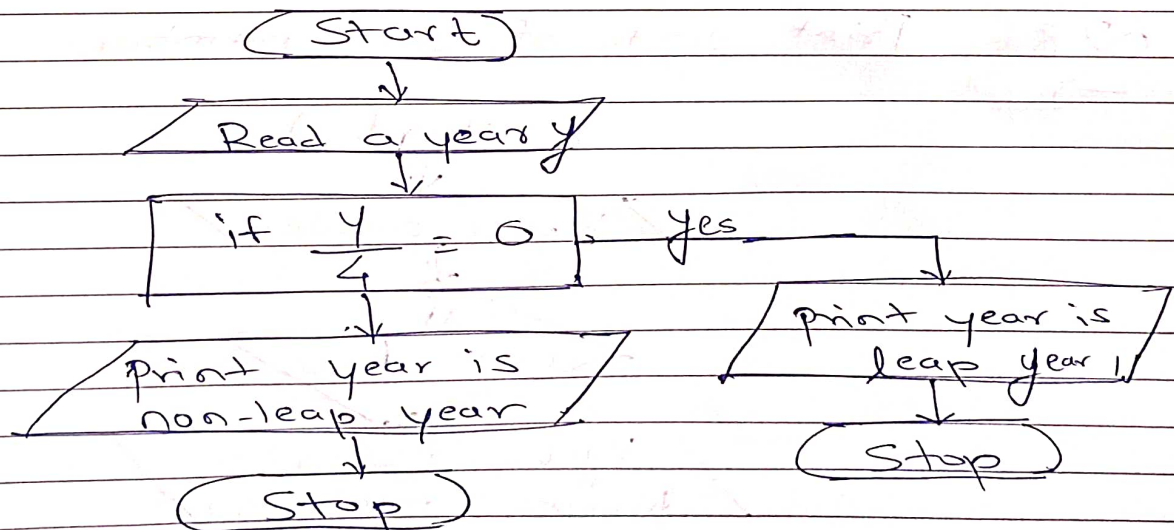 Start
Read a year y
if y/4 = 0
yes
print year is
leap year
Print year is
non-leap year
Stop
Stop